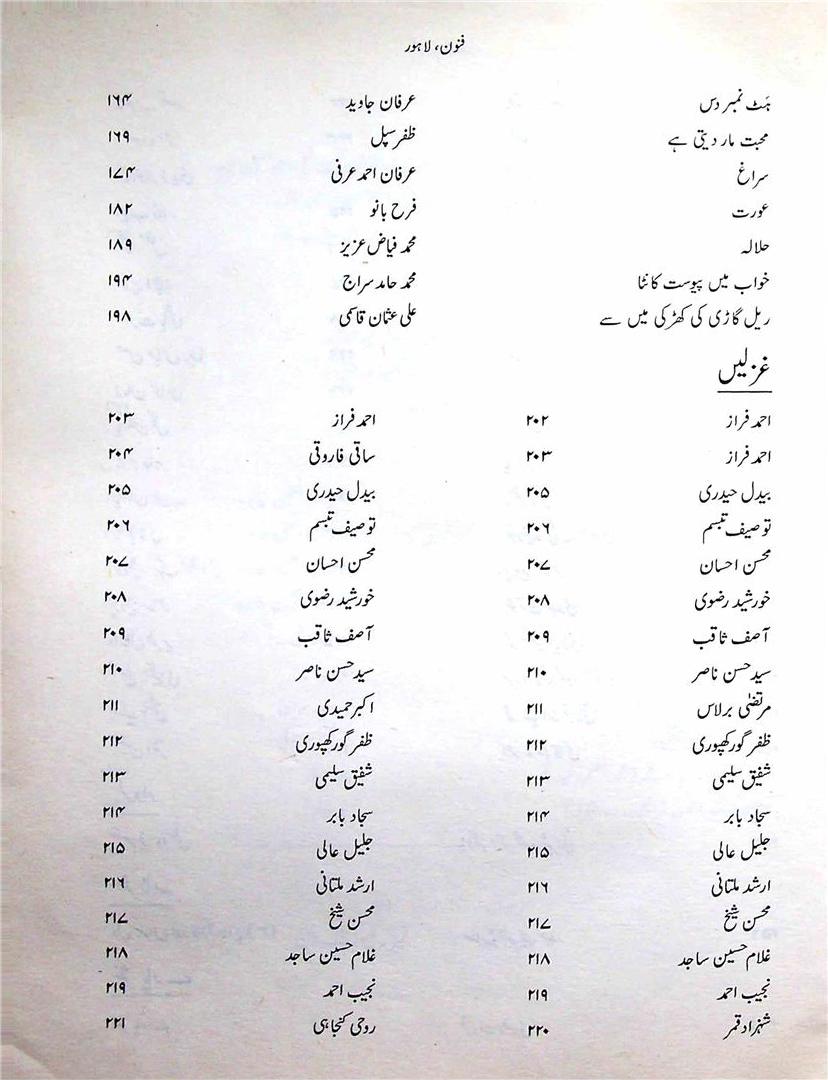 فنون، لاہور
ہَٹ نمبر دس عرفان جاوید ۱۶۴
محبت مار دیتی ہے ظفر سپل ۱۶۹
سراغ عرفان احمد عرفی ۱۷۴
عورت فرح بانو ۱۸۲
حلالہ محمد فیاض عزیز ۱۸۹
خواب میں پیوست کانٹا محمد حامد سراج ۱۹۴
ریل گاڑی کی کھڑکی میں سے علی عثمان قاسمی ۱۹۸
غزلیں
احمد فراز ۲۰۲ احمد فراز ۲۰۳
احمد فراز ۲۰۳ ساقی فاروقی ۲۰۴
بیدل حیدری ۲۰۵ بیدل حیدری ۲۰۵
توصیف تبسم ۲۰۶ توصیف تبسم ۲۰۶
محسن احسان ۲۰۷ محسن احسان ۲۰۷
خورشید رضوی ۲۰۸ خورشید رضوی ۲۰۸
آصف ثاقب ۲۰۹ آصف ثاقب ۲۰۹
سید حسن ناصر ۲۱۰ سید حسن ناصر ۲۱۰
مرتضٰی برلاس ۲۱۱ اکبر حمیدی ۲۱۱
ظفر گورکھپوری ۲۱۲ ظفر گورکھپوری ۲۱۲
شفیق سلیمی ۲۱۳ شفیق سلیمی ۲۱۳
سجاد بابر ۲۱۴ سجاد بابر ۲۱۴
جلیل عالی ۲۱۵ جلیل عالی ۲۱۵
ارشد ملتانی ۲۱۶ ارشد ملتانی ۲۱۶
محسن شیخ ۲۱۷ محسن شیخ ۲۱۷
غلام حسین ساجد ۲۱۸ غلام حسین ساجد ۲۱۸
نجیب احمد ۲۱۹ نجیب احمد ۲۱۹
شہزاد قمر ۲۲۰ روحی کنجاہی ۲۲۱